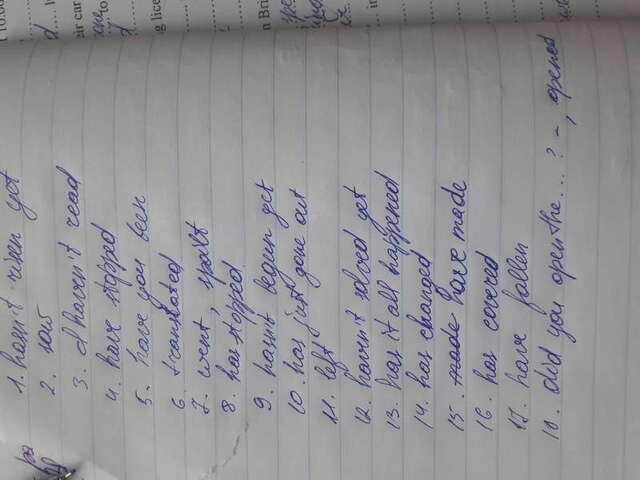 1. hasn't risen yet
2. saw
3. I haven't read
4. have stopped
5. have you been
6. translated
7. went, spoilt
8. has stopped
9. hasn't begun yet
10. has just gone out
11. left
12. haven't solved yet
13. has it all happened
14. has changed
15. made have made
16. has covered
17. have fallen
18. did you open the...? -, opened
10.00
eir car
to
g lice
n Bri
in